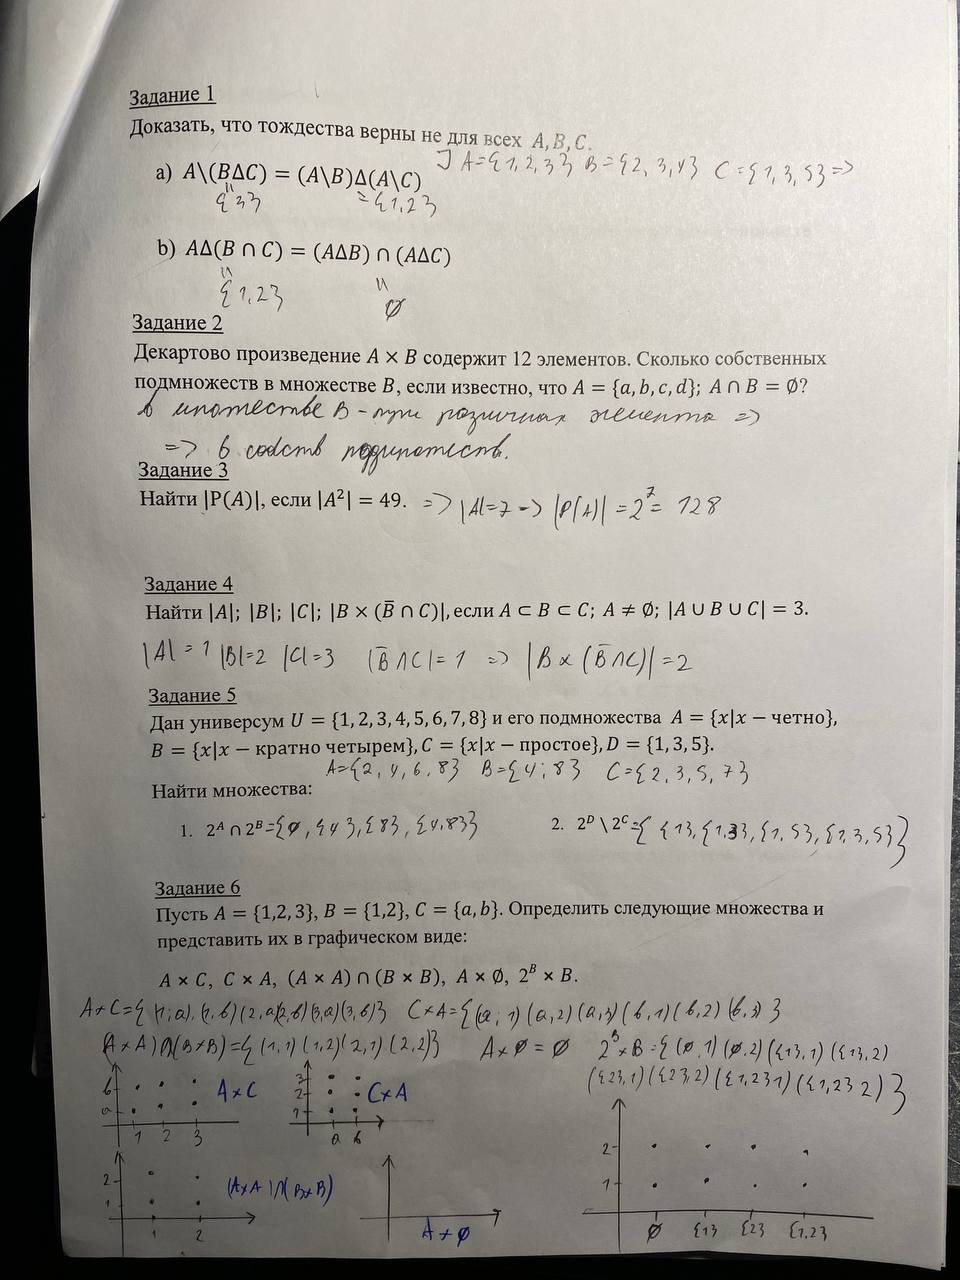 Задание 1
Доказать, что тождества верны не для всех A, B, C.
] A={1, 2, 3} B={2, 3, 4} C={1, 3, 5} =>
a) A\(BΔC) = (A\B)Δ(A\C)
" {3} ={1,2}
b) AΔ(B ∩ C) = (AΔB) ∩ (AΔC)
" "
{1,2} ∅
Задание 2
Декартово произведение A × B содержит 12 элементов. Сколько собственных
подмножеств в множестве B, если известно, что A = {a, b, c, d}; A ∩ B = ∅?
в множестве B - три различных элемента =>
=> 6 собств подмножеств.
Задание 3
Найти |P(A)|, если |A²| = 49. => |A|=7 -> |P(A)| = 2⁷ = 128
Задание 4
Найти |A|; |B|; |C|; |B × (B̄ ∩ C)|, если A ⊂ B ⊂ C; A ≠ ∅; |A ∪ B ∪ C| = 3.
|A| = 1 |B|=2 |C|=3 |B̄ ∩ C|= 1 => |B × (B̄ ∩ C)| = 2
Задание 5
Дан универсум U = {1, 2, 3, 4, 5, 6, 7, 8} и его подмножества A = {x|x − четно},
B = {x|x − кратно четырем}, C = {x|x − простое}, D = {1, 3, 5}.
A={2, 4, 6, 8} B={4; 8} C={2, 3, 5, 7}
Найти множества:
1. 2ᴬ ∩ 2ᴮ={∅, {4}, {8}, {4,8}} 2. 2ᴰ \ 2ᶜ={ {1}, {1,3}, {1, 5}, {1, 3, 5} }
Задание 6
Пусть A = {1,2,3}, B = {1,2}, C = {a, b}. Определить следующие множества и
представить их в графическом виде:
A × C, C × A, (A × A) ∩ (B × B), A × ∅, 2ᴮ × B.
A×C={(1;a),(1,b)(2,a)(2,b)(3,a)(3,b)} C×A={(a;1)(a,2)(a,3)(b,1)(b,2)(b,3)}
(A×A)∩(B×B)={(1,1)(1,2)(2,1)(2,2)} A×∅=∅ 2ᴮ×B={(∅,1)(∅,2)({1},1)({1},2)
({2},1)({2},2)({1,2}1)({1,2}2)}
b a A×C 1 2 3
3 2 1 C×A a b
2 1 (A×A)∩(B×B) 1 2
A×∅
2 1 ∅ {1} {2} {1,2}